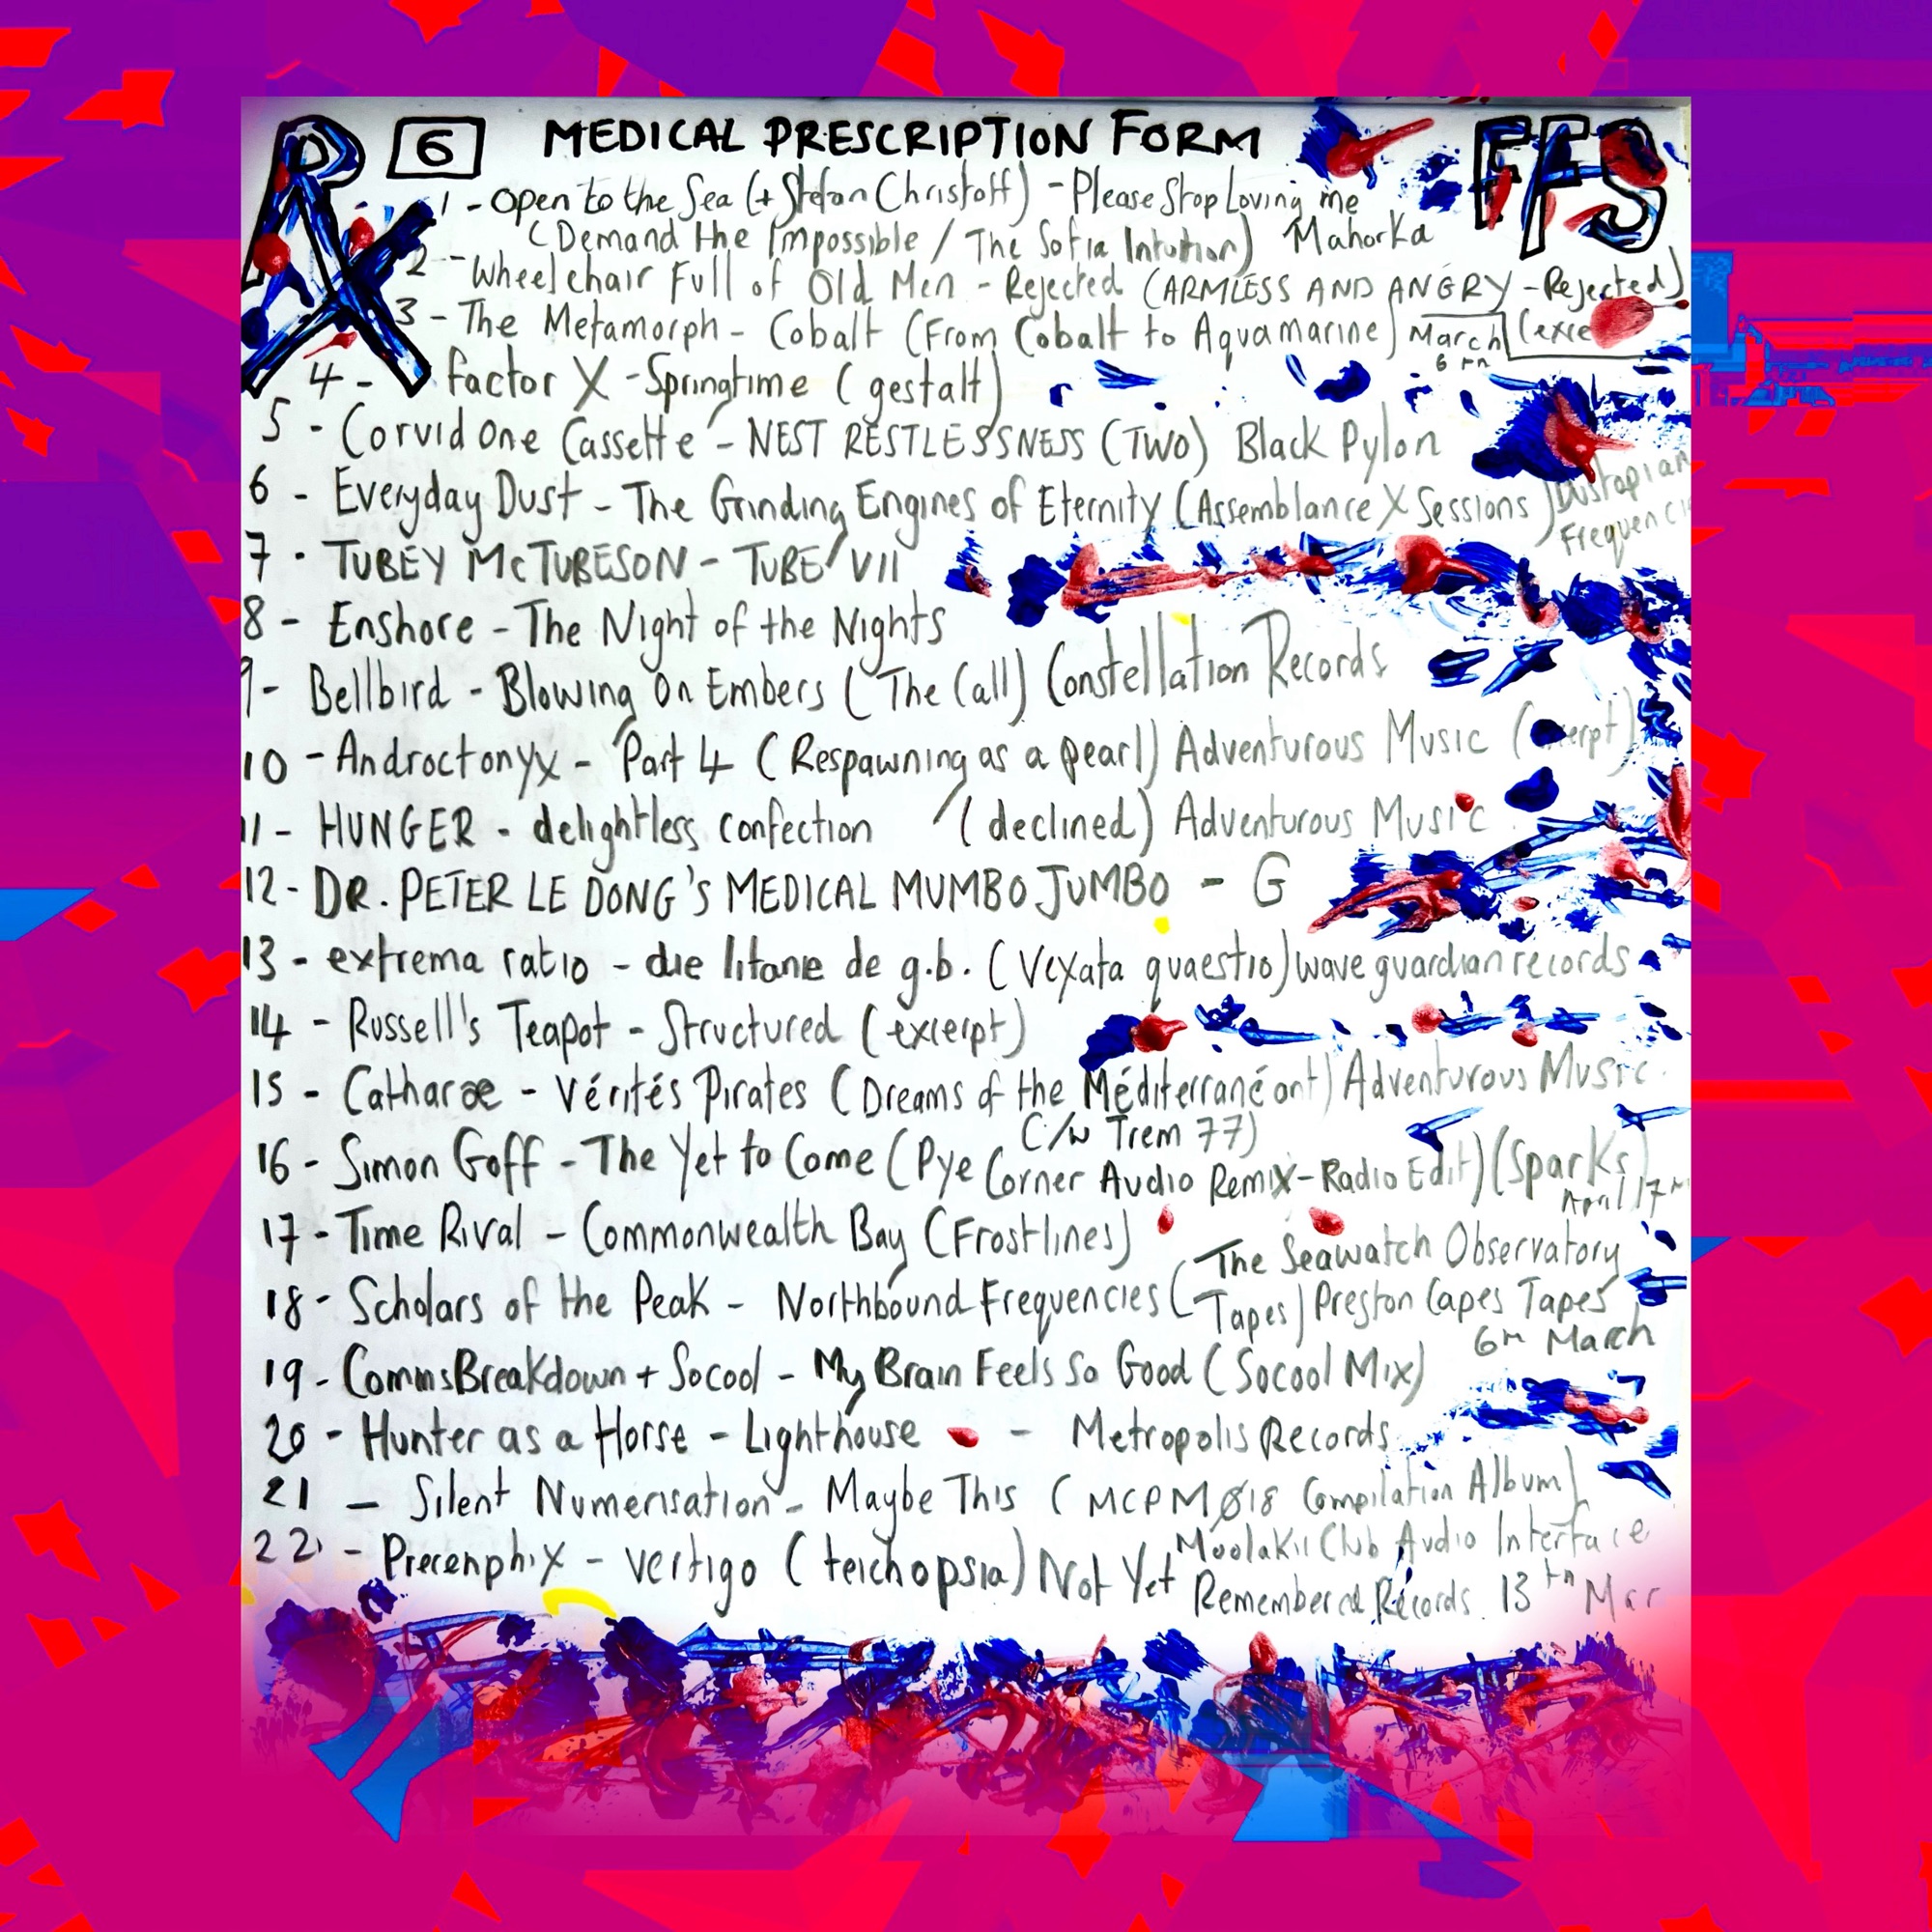 Rx 6 MEDICAL PRESCRIPTION FORM FFS
1 - Open to the Sea (+ Stefan Christoff) - Please Stop Loving me
(Demand the Impossible / The Sofia Intuition) Mahorka
2 - Wheelchair Full of Old Men - Rejected (ARMLESS AND ANGRY - Rejected)
3 - The Metamorph - Cobalt (From Cobalt to Aquamarine) March 6th
4 - Factor X - Springtime (gestalt)
5 - Corvid One Cassette - NEST RESTLESSNESS (TWO) Black Pylon
6 - Everyday Dust - The Grinding Engines of Eternity (Assemblance X Sessions) Dustopian
7 - TUBEY McTUBESON - TUBE VII
8 - Enshore - The Night of the Nights
9 - Bellbird - Blowing On Embers (The Call) Constellation Records
10 - Androctonyx - Part 4 (Respawning as a pearl) Adventurous Music
11 - HUNGER - delightless confection (declined) Adventurous Music
12 - DR. PETER LE DONG'S MEDICAL MUMBO JUMBO - G
13 - extrema ratio - die litanie de g.b. (Vexata quaestio) wave guardian records
14 - Russell's Teapot - Structured (excerpt)
15 - Catharae - Vérités Pirates (Dreams of the Méditerranéont) Adventurous Music
C/W Trem 77)
16 - Simon Goff - The Yet to Come (Pye Corner Audio Remix - Radio Edit) (Sparks) April 17th
17 - Time Rival - Commonwealth Bay (Frostlines)
18 - Scholars of the Peak - Northbound Frequencies (The Seawatch Observatory
Tapes) Preston Capes Tapes
6th March
19 - CommsBreakdown + Socool - My Brain Feels So Good (Socool Mix)
20 - Hunter as a Horse - Lighthouse - Metropolis Records
21 - Silent Numerisation - Maybe This (MCPMØ18 Compilation Album)
Moolakii Club Audio Interface
22 - Precenphix - vertigo (teichopsia) Not Yet
Remembered Records. 13th Mar